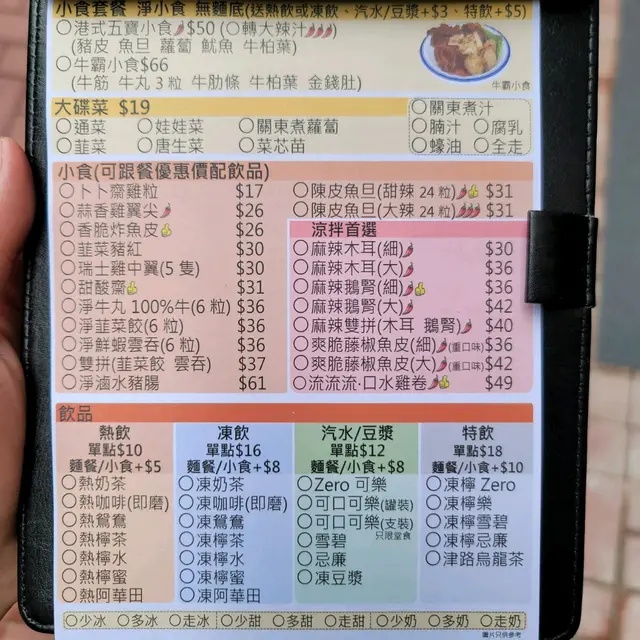 小食套餐 淨小食 無麵底(送熱飲或凍飲、汽水/豆漿+$3、特飲+$5)
○港式五寶小食$50 (○轉大辣汁)
(豬皮 魚旦 蘿蔔 魷魚 牛柏葉)
○牛霸小食$66
(牛筋 牛丸3粒 牛肋條 牛柏葉 金錢肚)
牛霸小食
大碟菜 $19
○通菜 ○娃娃菜 ○關東煮蘿蔔
○韮菜 ○唐生菜 ○菜芯苗
○關東煮汁
○腩汁 ○腐乳
○蠔油 ○全走
小食(可跟餐優惠價配飲品)
○卜卜齋雞粒 $17
○蒜香雞翼尖 $26
○香脆炸魚皮 $26
○韮菜豬紅 $30
○瑞士雞中翼(5隻) $30
○甜酸齋 $31
○淨牛丸 100%牛(6粒) $36
○淨韮菜餃(6粒) $36
○淨鮮蝦雲吞(6粒) $36
○雙拼(韮菜餃 雲吞) $37
○淨滷水豬腸 $61
○陳皮魚旦(甜辣 24粒) $31
○陳皮魚旦(大辣 24粒) $31
涼拌首選
○麻辣木耳(細) $30
○麻辣木耳(大) $36
○麻辣鵝腎(細) $36
○麻辣鵝腎(大) $42
○麻辣雙拼(木耳 鵝腎) $40
○爽脆藤椒魚皮(細)(重口味) $36
○爽脆藤椒魚皮(大)(重口味) $42
○流流流‧口水雞卷 $49
飲品
熱飲
單點$10
麵餐/小食+$5
○熱奶茶
○熱咖啡(即磨)
○熱鴛鴦
○熱檸茶
○熱檸水
○熱檸蜜
○熱阿華田
凍飲
單點$16
麵餐/小食+$8
○凍奶茶
○凍咖啡(即磨)
○凍鴛鴦
○凍檸茶
○凍檸水
○凍檸蜜
○凍阿華田
汽水/豆漿
單點$12
麵餐/小食+$8
○Zero 可樂
○可口可樂(罐裝)
○可口可樂(支裝)
只限堂食
○雪碧
○忌廉
○凍豆漿
特飲
單點$18
麵餐/小食+$10
○凍檸 Zero
○凍檸樂
○凍檸雪碧
○凍檸忌廉
○津路烏龍茶
○少冰 ○多冰 ○走冰 ○少甜 ○多甜 ○走甜 ○少奶 ○多奶 ○走奶
圖片只供參考